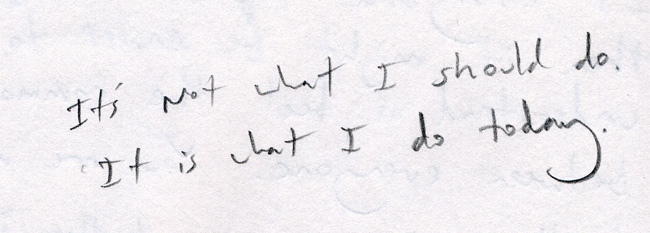 It's not what I should do.
It is what I do today.